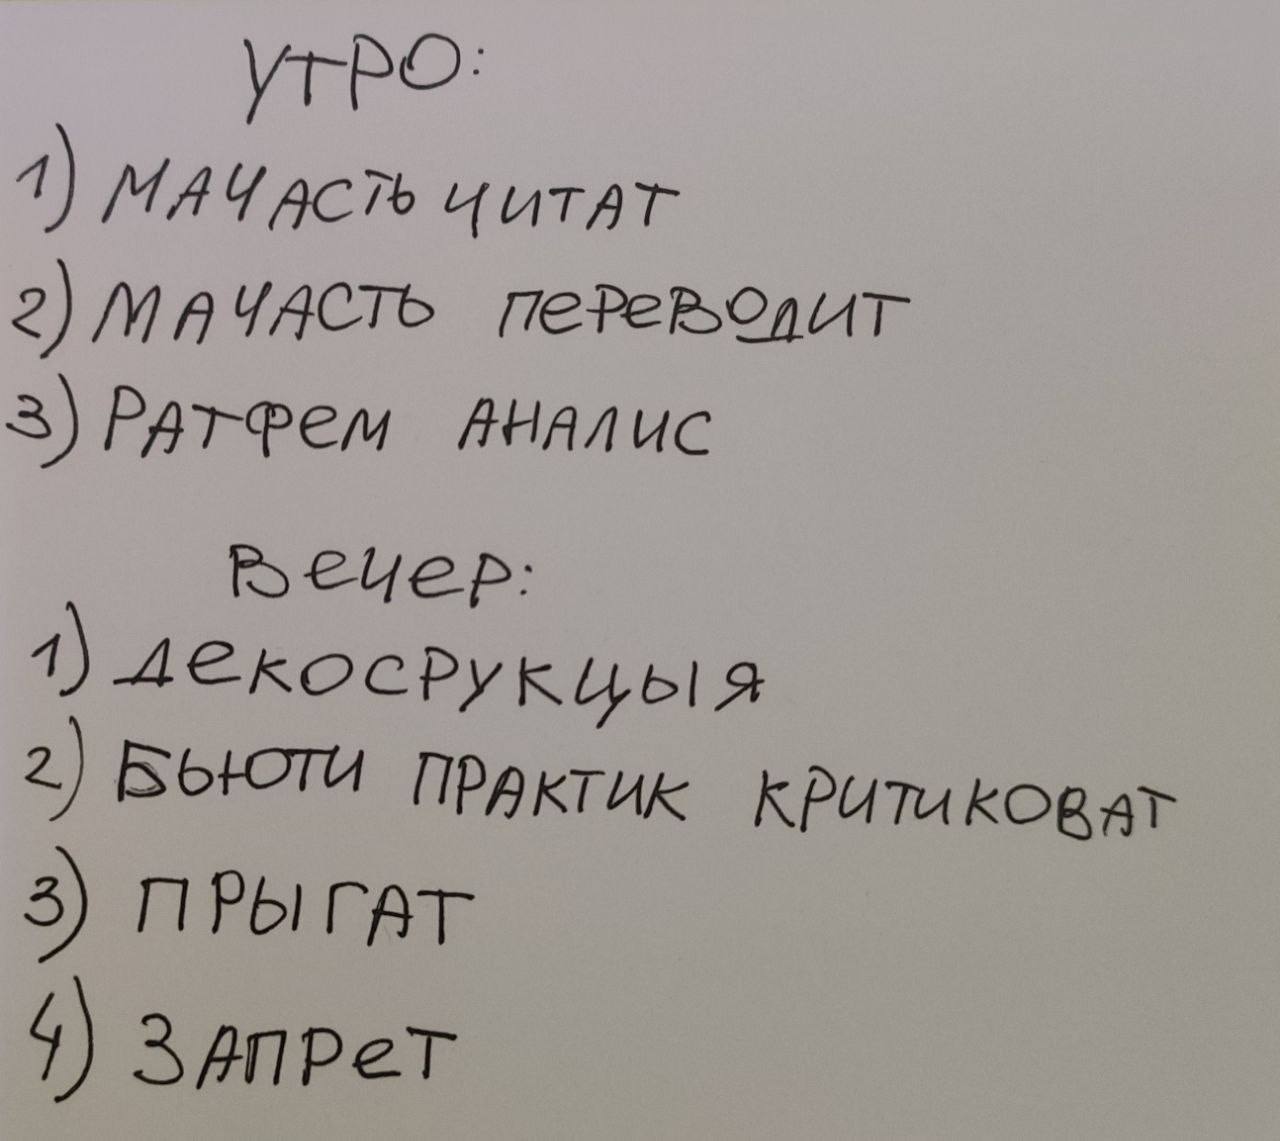 УТРО:
1) МАЧАСТЬ ЧИТАТ
2) МАЧАСТЬ ПЕРЕВОДИТ
3) РАТФЕМ АНАЛИС
ВЕЧЕР:
1) ДЕКОСРУКЦЫЯ
2) БЬЮТИ ПРАКТИК КРИТИКОВАТ
3) ПРЫГАТ
4) ЗАПРЕТ